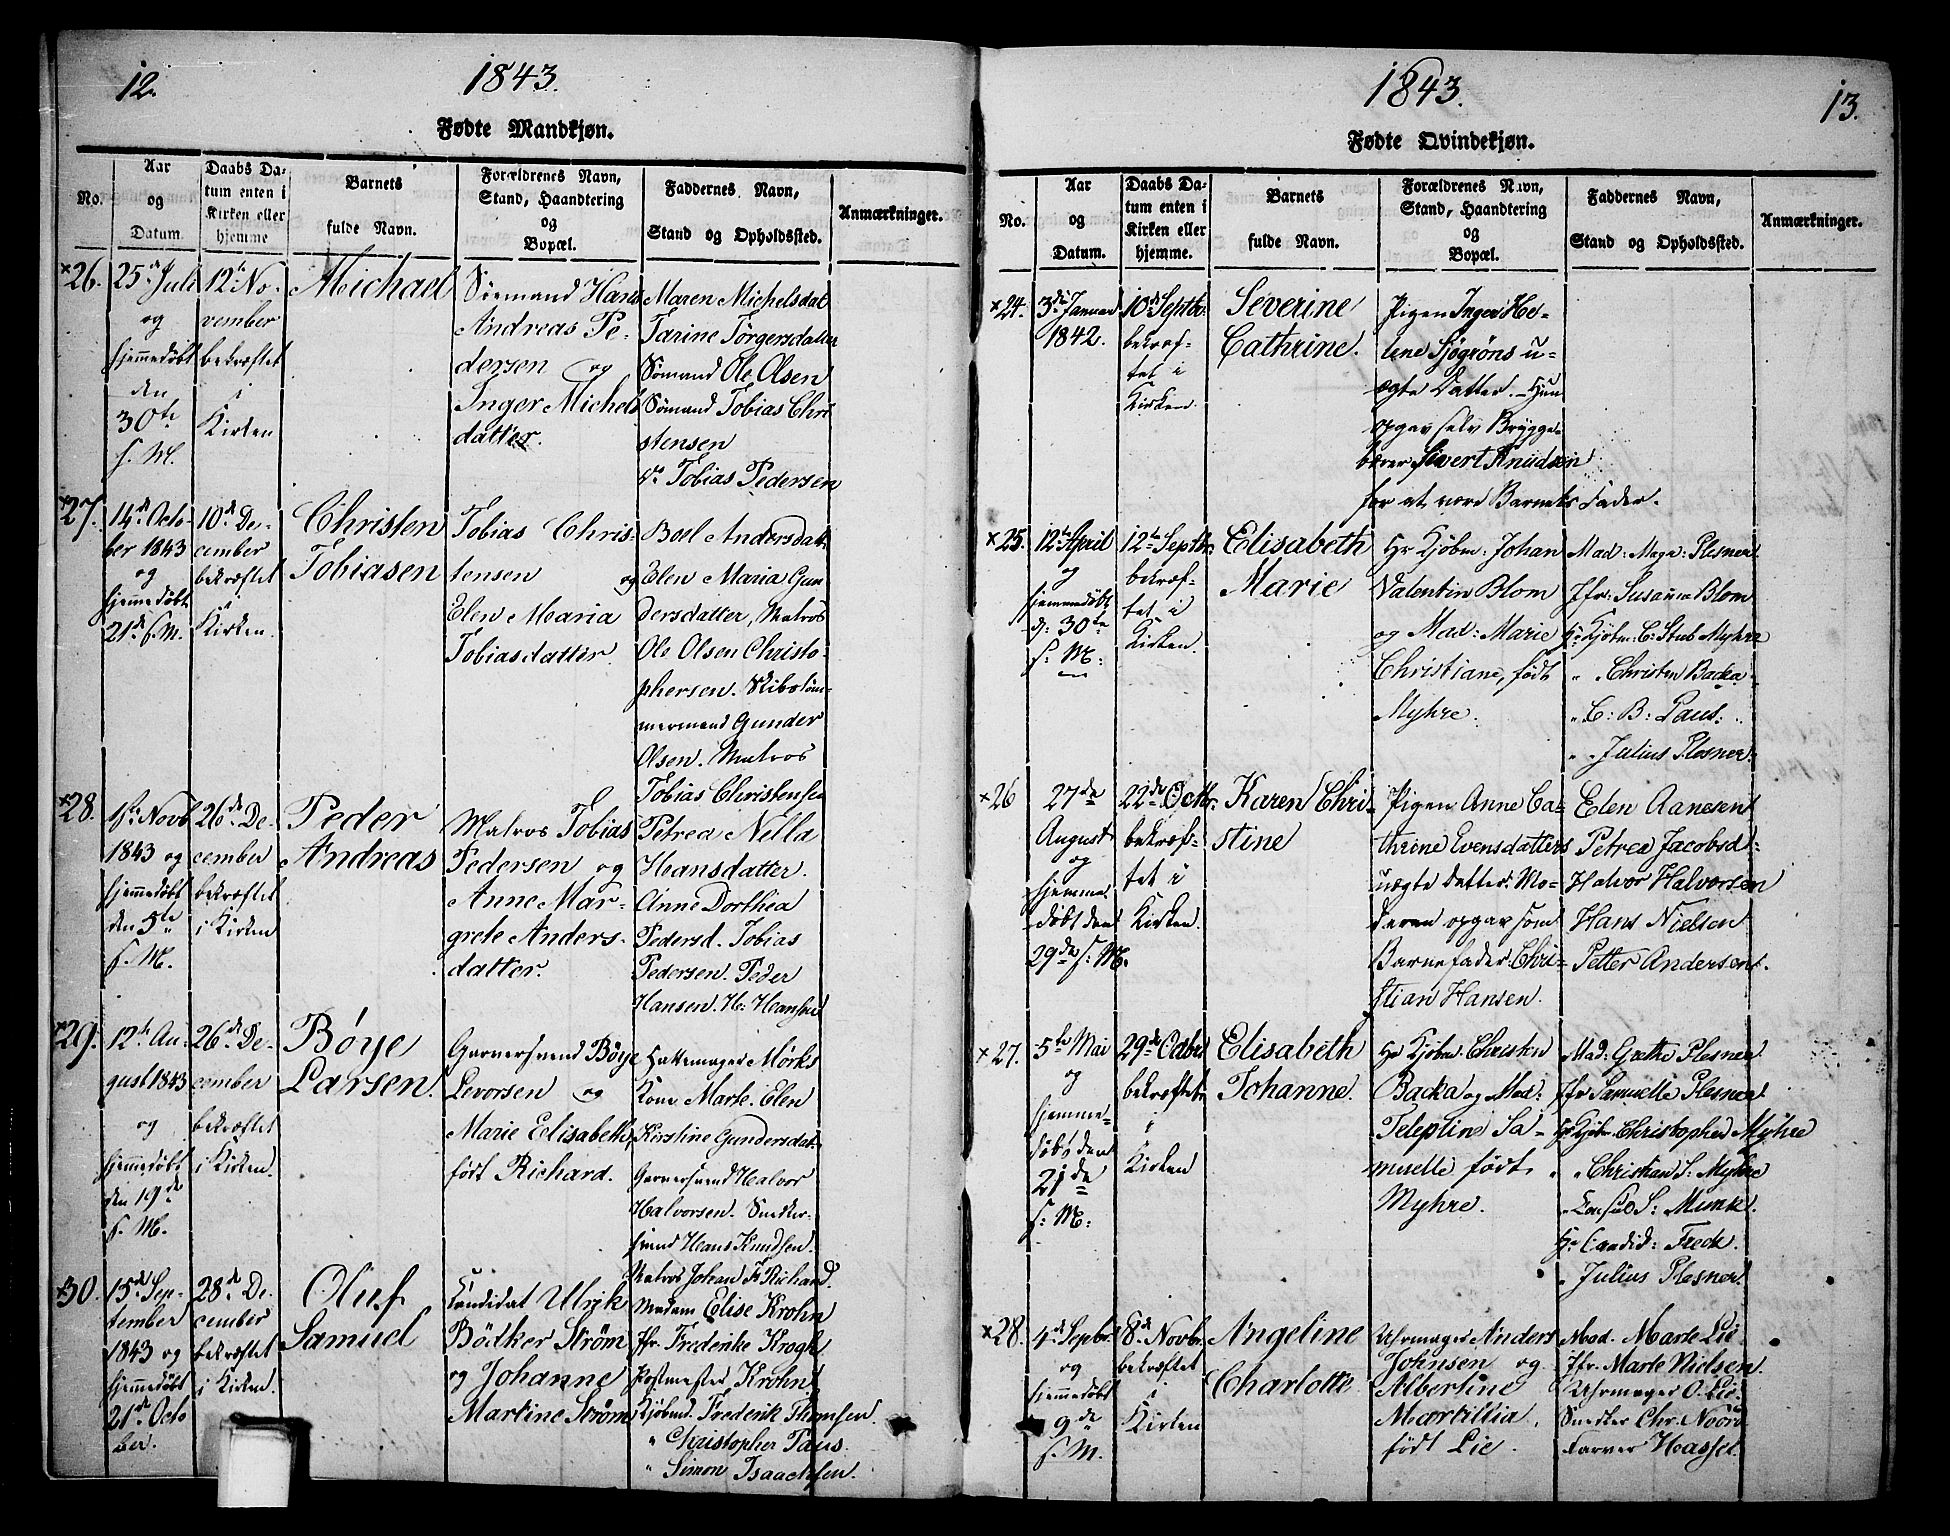 12.
1843.
Fødte Mandkjøn.
No.
Aar
og
Datum.
Daabs Da-
tum enten i
Kirken eller
hjemme
Barnets
fulde Navn.
Forældrenes Navn,
Stand, Haandtering
og
Bopæl.
Faddernes Navn,
Stand og Opholdssted.
Anmærkninger.
×26.
25de Juli
og
hjemmedøbt
den
30te
s. M.
12te No-
vember
bekræftet
i
Kirken
Michael
Sømand Hans
Andreas Pe-
dersen og
Inger Michels
datter.
Maren Michelsdat
Tarine Törgersdatter
Sömand Ole Olsen
Sömand Tobias Chri
stensen
do Tobias Pedersen
×27.
14de Octo-
ber 1843
og
hjemmedöbt
21de s. M.
10de De-
cember
bekræftet
i
Kirken.
Christen
Tobiasen
Tobias Chris-
tensen og
Elen Maria
Tobiasdatter.
Boel Andersdatt
Elen Maria Gun
dersdatter, Matros
Ole Olsen Christo-
phersen. Skibstöm-
mermand Gunder
Olsen. Matros
Tobias Christensen
×28.
1ste Novb
1843 og
hjemmedöbt
den 5te
s. M.
26de De-
cember
bekræftet
i Kirken
Peder
Andreas
Matros Tobias
Pedersen og
Anne Mar-
grete Anders-
datter.
Petrea Nella
Hansdatter.
Anne Dorthea
Pedersd. Tobias
Pedersen. Peder
Hansen. H: Hansen
×29.
12te Au-
gust 1843
og
hjemmedöbt
den 19de
s. M.
26de De-
cember
bekræftet
i Kirken.
Böye
Larsen.
Garversvend Böye
Levorsen og
Marie Elisabeth,
födt Richard.
Hattemager Mörks
Kone Marte. Elen
Kirstine Gundersdat.
Garversvend Halvor
Halvorsen. Snedker-
svend Hans Knudsen.
Matros Johan F. Richard.
×30.
15de Sep-
tember
1843 og
hjemmedöbt
21de Octo
ber.
28de De-
cember
bekræftet
i Kirken.
Oluf
Samuel
Candidat Ulrik
Bödtker Ström
og Johanne
Martine Ström
Madam Elise Krohn
Jfr. Frederike Krogh
Postmester Krohn
Kjöbmd. Frederik Thomsen.
" Christopher Paus.
" Simon Isaachsen.
1843.
13.
Fødte Qvindekjøn.
No.
Aar
og
Datum.
Daabs Da-
tum enten i
Kirken eller
hjemme.
Barnets
fulde Navn.
Forældrenes Navn,
Stand, Haandtering
og
Bopæl.
Faddernes Navn,
Stand og Opholdssted.
Anmærkninger.
×24.
3de Januar
1842.
10de Septbr.
bekræf-
tet i
Kirken.
Severine
Cathrine.
Pigen Inger He-
lene Sjögröns u-
ægte Datter. Hun
opgav selv Brygge-
bærer Sivert Knudsen
for at være Barnets Fader.
×25.
12te April
og
hjemmedöbt
d: 30te
s: M:
12te Septbr.
bekræf-
tet i
Kirken.
Elisabeth
Marie
Hr Kjöbm. Johan
Valentin Blom
og Mad: Marie
Christiane, födt
Myhre.
Mad: Plesner
Jfr: Susanne Blom
Hr: Kjöbm: C: Stub Myhre
" Christen Backa
" C: B: Paus.
" Julius Plesner
×26
27de
August
og
hjemme
döbt den
29de s: M.
22de Octbr.
bekræf-
tet i
Kirken.
Karen Chri-
stine
Pigen Anne Ca-
thrine Evensdatters
uægte Datter. Mo-
deren opgav som
Barnefader: Chri-
stian Hansen.
Elen Aanesen
Petrea Jacobsd:
Halvor Halvorsen
Hans Nielsen
Petter Andersen.
×27.
5te Mai
og
hjemme-
döbt den
21de
s: M:
29de Octbr
bekræftet
i
Kirken
Elisabeth
Johanne.
Hr Kjöbm. Christen
Backa og Mad:
Teleptine Sa-
muelle födt
Myhre.
Mad: Grethe Plesner
Jfr Samuelle Plesner
Hr Kjöbm. Christopher Myhre
" Christian S: Myhre
" Consul S: Munk.
Hr Candid: Freck.
" Julius Plesner
×28.
4de Septbr.
og
hjemmedöbt
9de
s. M.
8de Novbr.
bekræftet
i
Kirken
Angeline
Charlotte
Uhrmager Anders
Johnsen og
Albertine
Marcillia,
födt Lie.
Mad. Marte Lie
Jfr. Marte Nielsen
Uhrmager O. Lie
Snedker Chr. Noör
Farver Hassel.